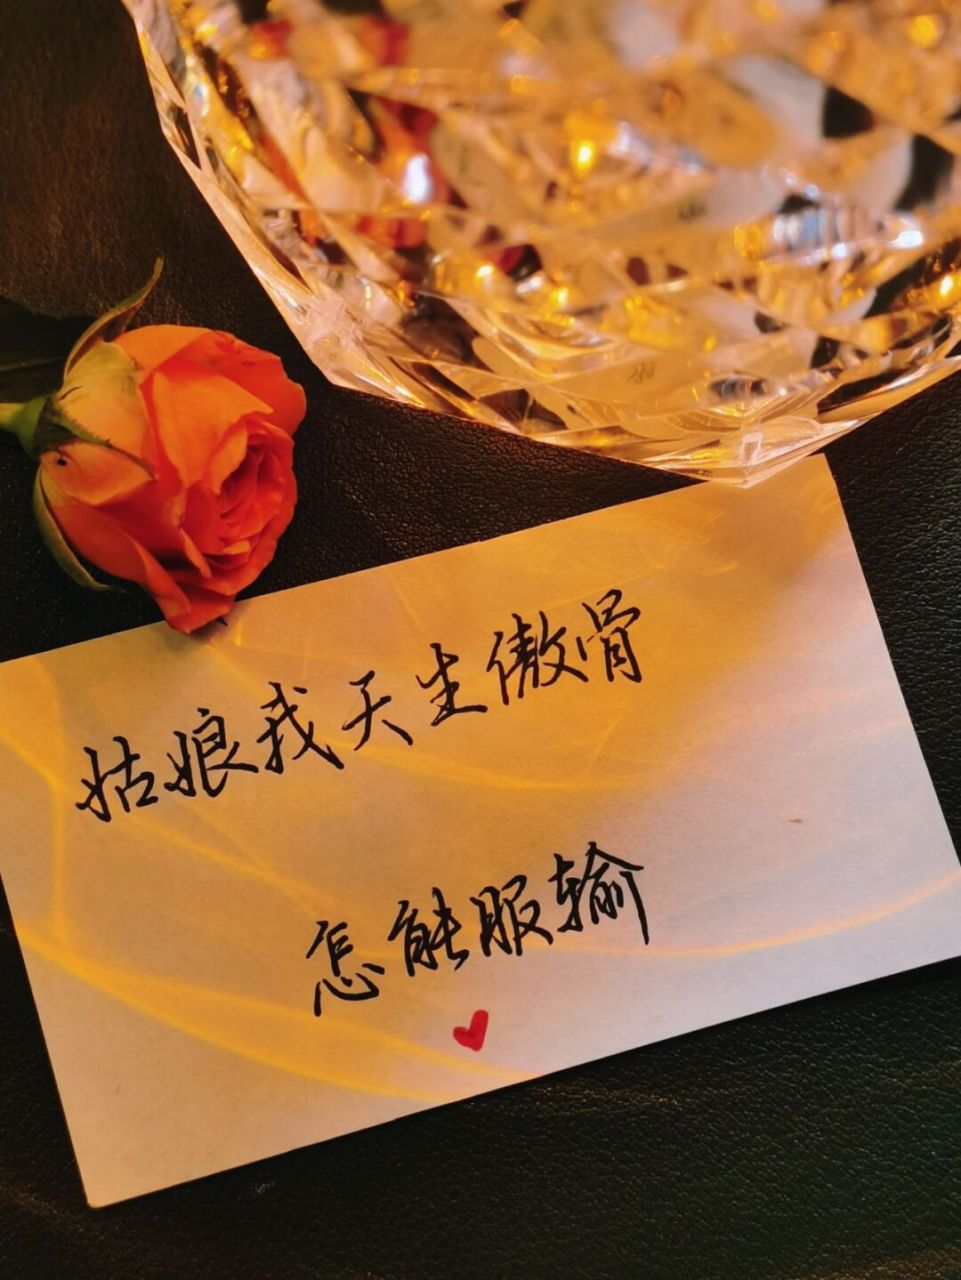 姑娘我天生傲骨
怎能服输